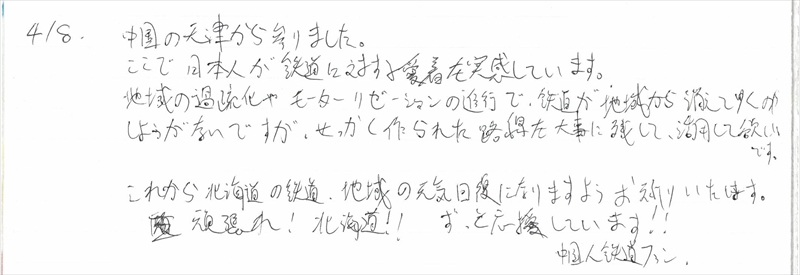 4/8. 中国の天津から参りました。
ここで日本人が鉄道に対する愛着を実感しています。
地域の過疎化やモーターリゼーションの進行で、鉄道が地域から消えてゆくの
しょうがないですが、せっかく作られた路線を大事に残して、活用して欲しい
です。
これから北海道の鉄道、地域の元気回復になりますようお祈りいたします。
頑張れ！北海道！！ ずっと応援しています！！
中国人鉄道ファン.